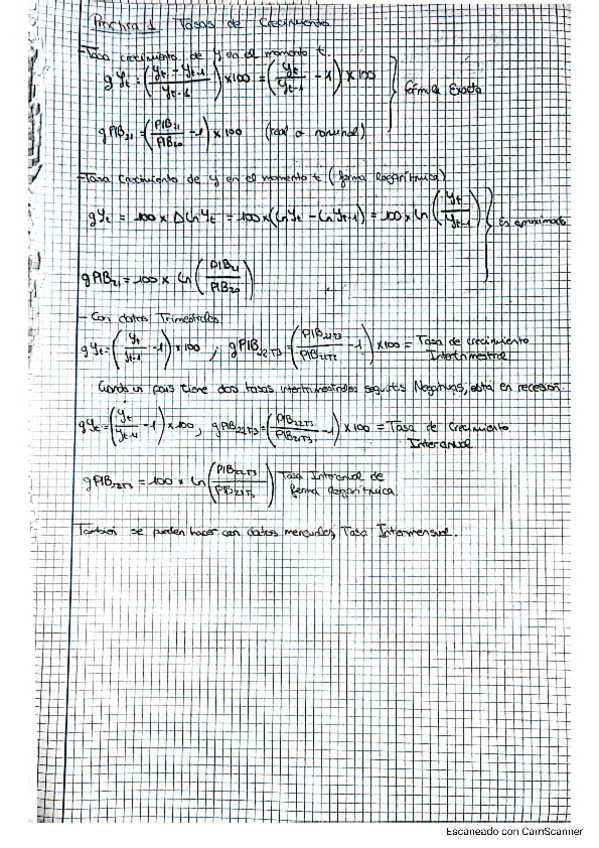 Práctica 1: Tasas de Crecimiento
-Tasa crecimiento de y en el momento t.
gYt = (Yt - Yt-1 / Yt-1) x100 = (Yt / Yt-1 - 1) x100 } fórmula Exacta
gPIB21 = (PIB21 / PIB20 - 1) x 100 (real o nominal)
-Tasa Crecimiento de y en el momento t (forma logarítmica)
gYt = 100 x Δ Ln Yt = 100 x (Ln Yt - Ln Yt-1) = 100 x Ln (Yt / Yt-1) } Es aproximado
gPIB21 = 100 x Ln (PIB21 / PIB20)
- Con datos Trimestrales
gYt = (Yt / Yt-1 - 1) x 100 ; gPIB22T3 = (PIB22T3 / PIB22T2 - 1) x100 = Tasa de crecimiento
Intertrimestral
Cuando un país tiene dos tasas intertrimestrales seguidas Negativas, está en recesión.
gYt = (Yt / Yt-4 - 1) x 100, gPIB22T3 = (PIB22T3 / PIB21T3 - 1) x 100 = Tasa de Crecimiento
Interanual
gPIB22T3 = 100 x Ln (PIB22T3 / PIB21T3) Tasa Interanual de
forma logarítmica.
También se pueden hacer con datos mensuales, Tasa Intermensual.
Escaneado con CamScanner